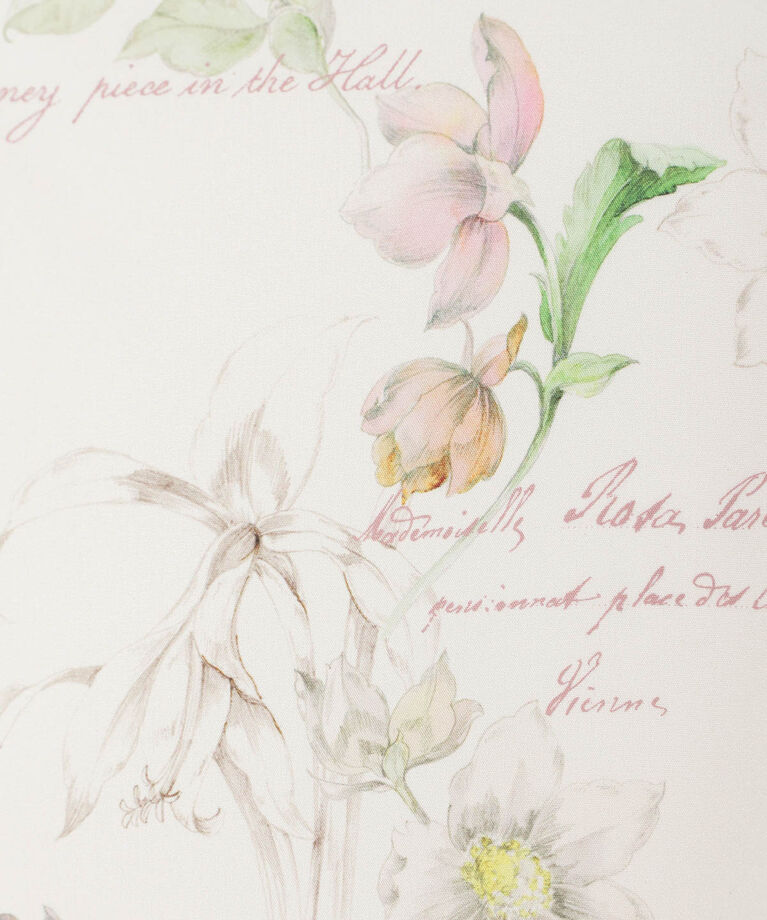 ney piece in the Hall.
Mademoiselle Rosa Par
pensionnat place des
Vienne